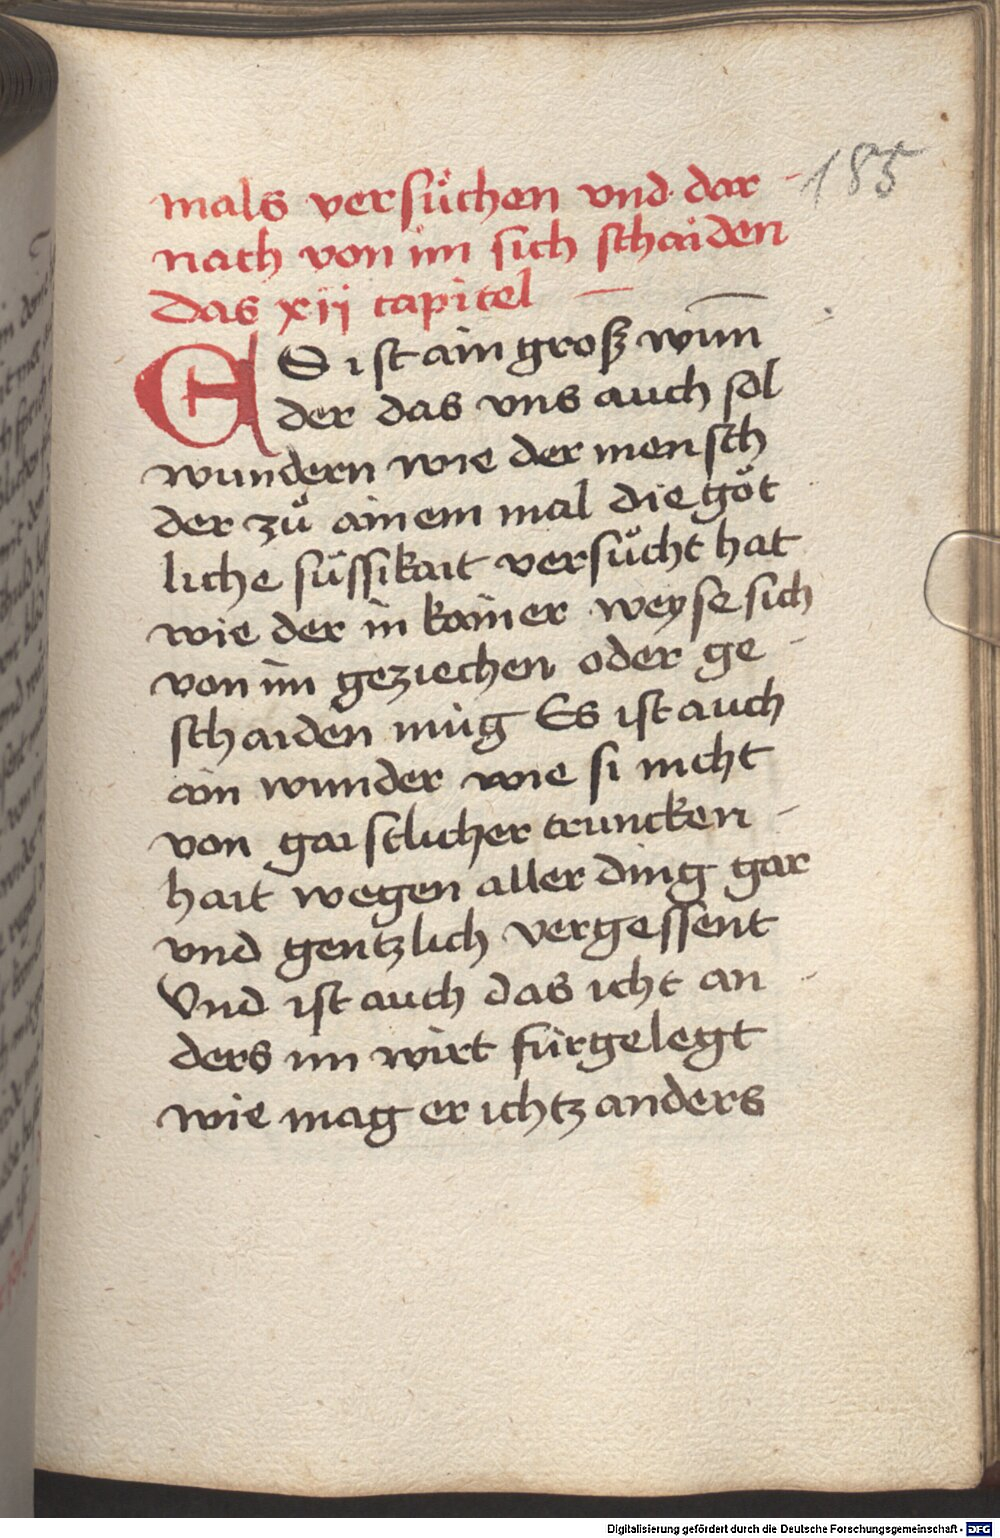 185
mals versuͦchen vnd dar-
nach von im sich schaiden
das xij capitel —
ES ist ain groß wun̅
der das vns auch sol
wundern wie der mensch
der zuͦ ainem mal die göt
liche süssikait versuͦcht hat
wie der in kainer weyse sich
von im geziechen oder ge-
schaiden müg Es ist auch
ain wunder wie si nicht
von gaistlicher truncken-
hait wegen aller ding gar
vnd gentzlich vergessent
Vnd ist auch das icht an-
ders im wirt fürgelegt
wie mag er ichtz anders
Digitalisierung gefördert durch die Deutsche Forschungsgemeinschaft - DFG